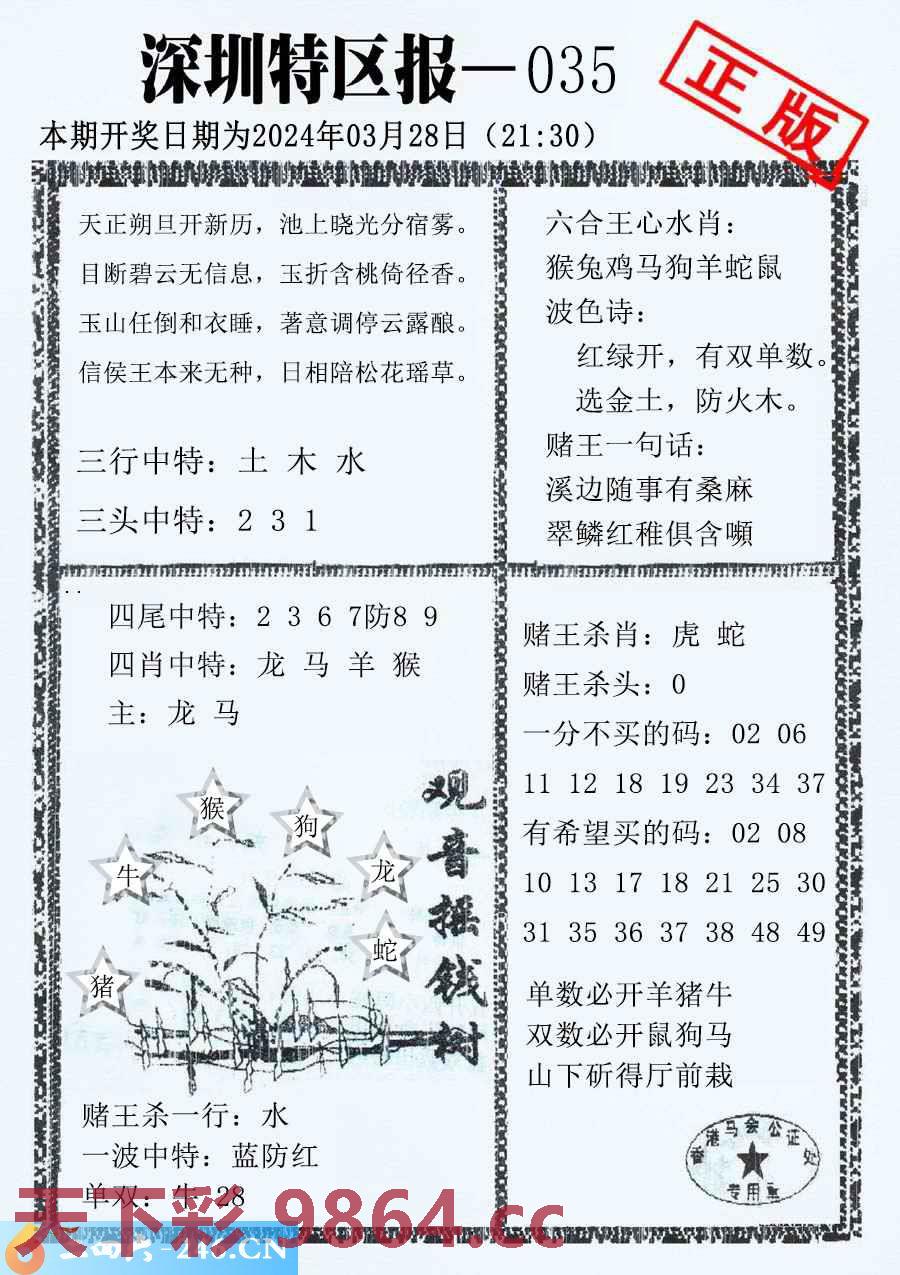 深圳特区报—035
正版
本期开奖日期为2024年03月28日（21:30）
天正朔旦开新历，池上晓光分宿雾。
目断碧云无信息，玉折含桃倚径香。
玉山任倒和衣睡，著意调停云露酿。
信侯王本来无种，日相陪松花瑶草。
三行中特：土 木 水
三头中特：2 3 1
六合王心水肖：
猴兔鸡马狗羊蛇鼠
波色诗：
红绿开，有双单数。
选金土，防火木。
赌王一句话：
溪边随事有桑麻
翠鳞红稚俱含嚬
四尾中特：2 3 6 7防8 9
四肖中特：龙 马 羊 猴
主：龙 马
猴
狗
牛
龙
蛇
猪
观音摇钱树
赌王杀一行：水
一波中特：蓝防红
单双：牛 28
赌王杀肖：虎 蛇
赌王杀头：0
一分不买的码：02 06
11 12 18 19 23 34 37
有希望买的码：02 08
10 13 17 18 21 25 30
31 35 36 37 38 48 49
单数必开羊猪牛
双数必开鼠狗马
山下斫得厅前栽
香港马会公证处
专用章
天下彩.9864.cc
-246.CN